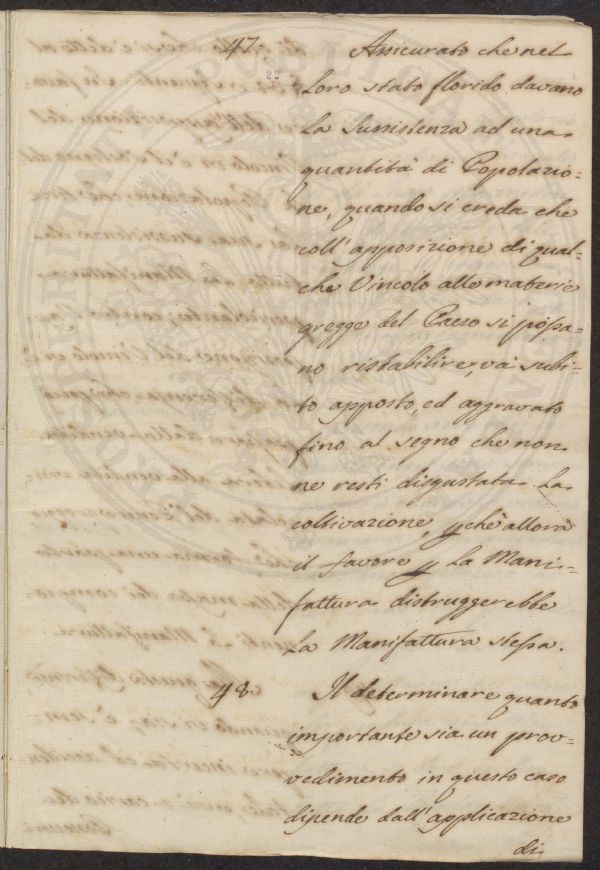 47. Assicurato che nel
loro stato florido davano
la sussistenza ad una
quantità di Popolazio=
ne, quando si creda che
coll'apposizione di qual=
che Vincolo alle materie
gregge del Paese si possa=
no ristabilire, và subi=
to apposto, ed aggravato
fino al segno che non
ne resti disgustata la
coltivazione, pchè allora
il favore p la Mani=
fattura distruggerebbe
la Manifattura stessa.
48. Il determinare quanto
importante sia un prov=
vedimento in questo caso
dipende dall'applicazione
di